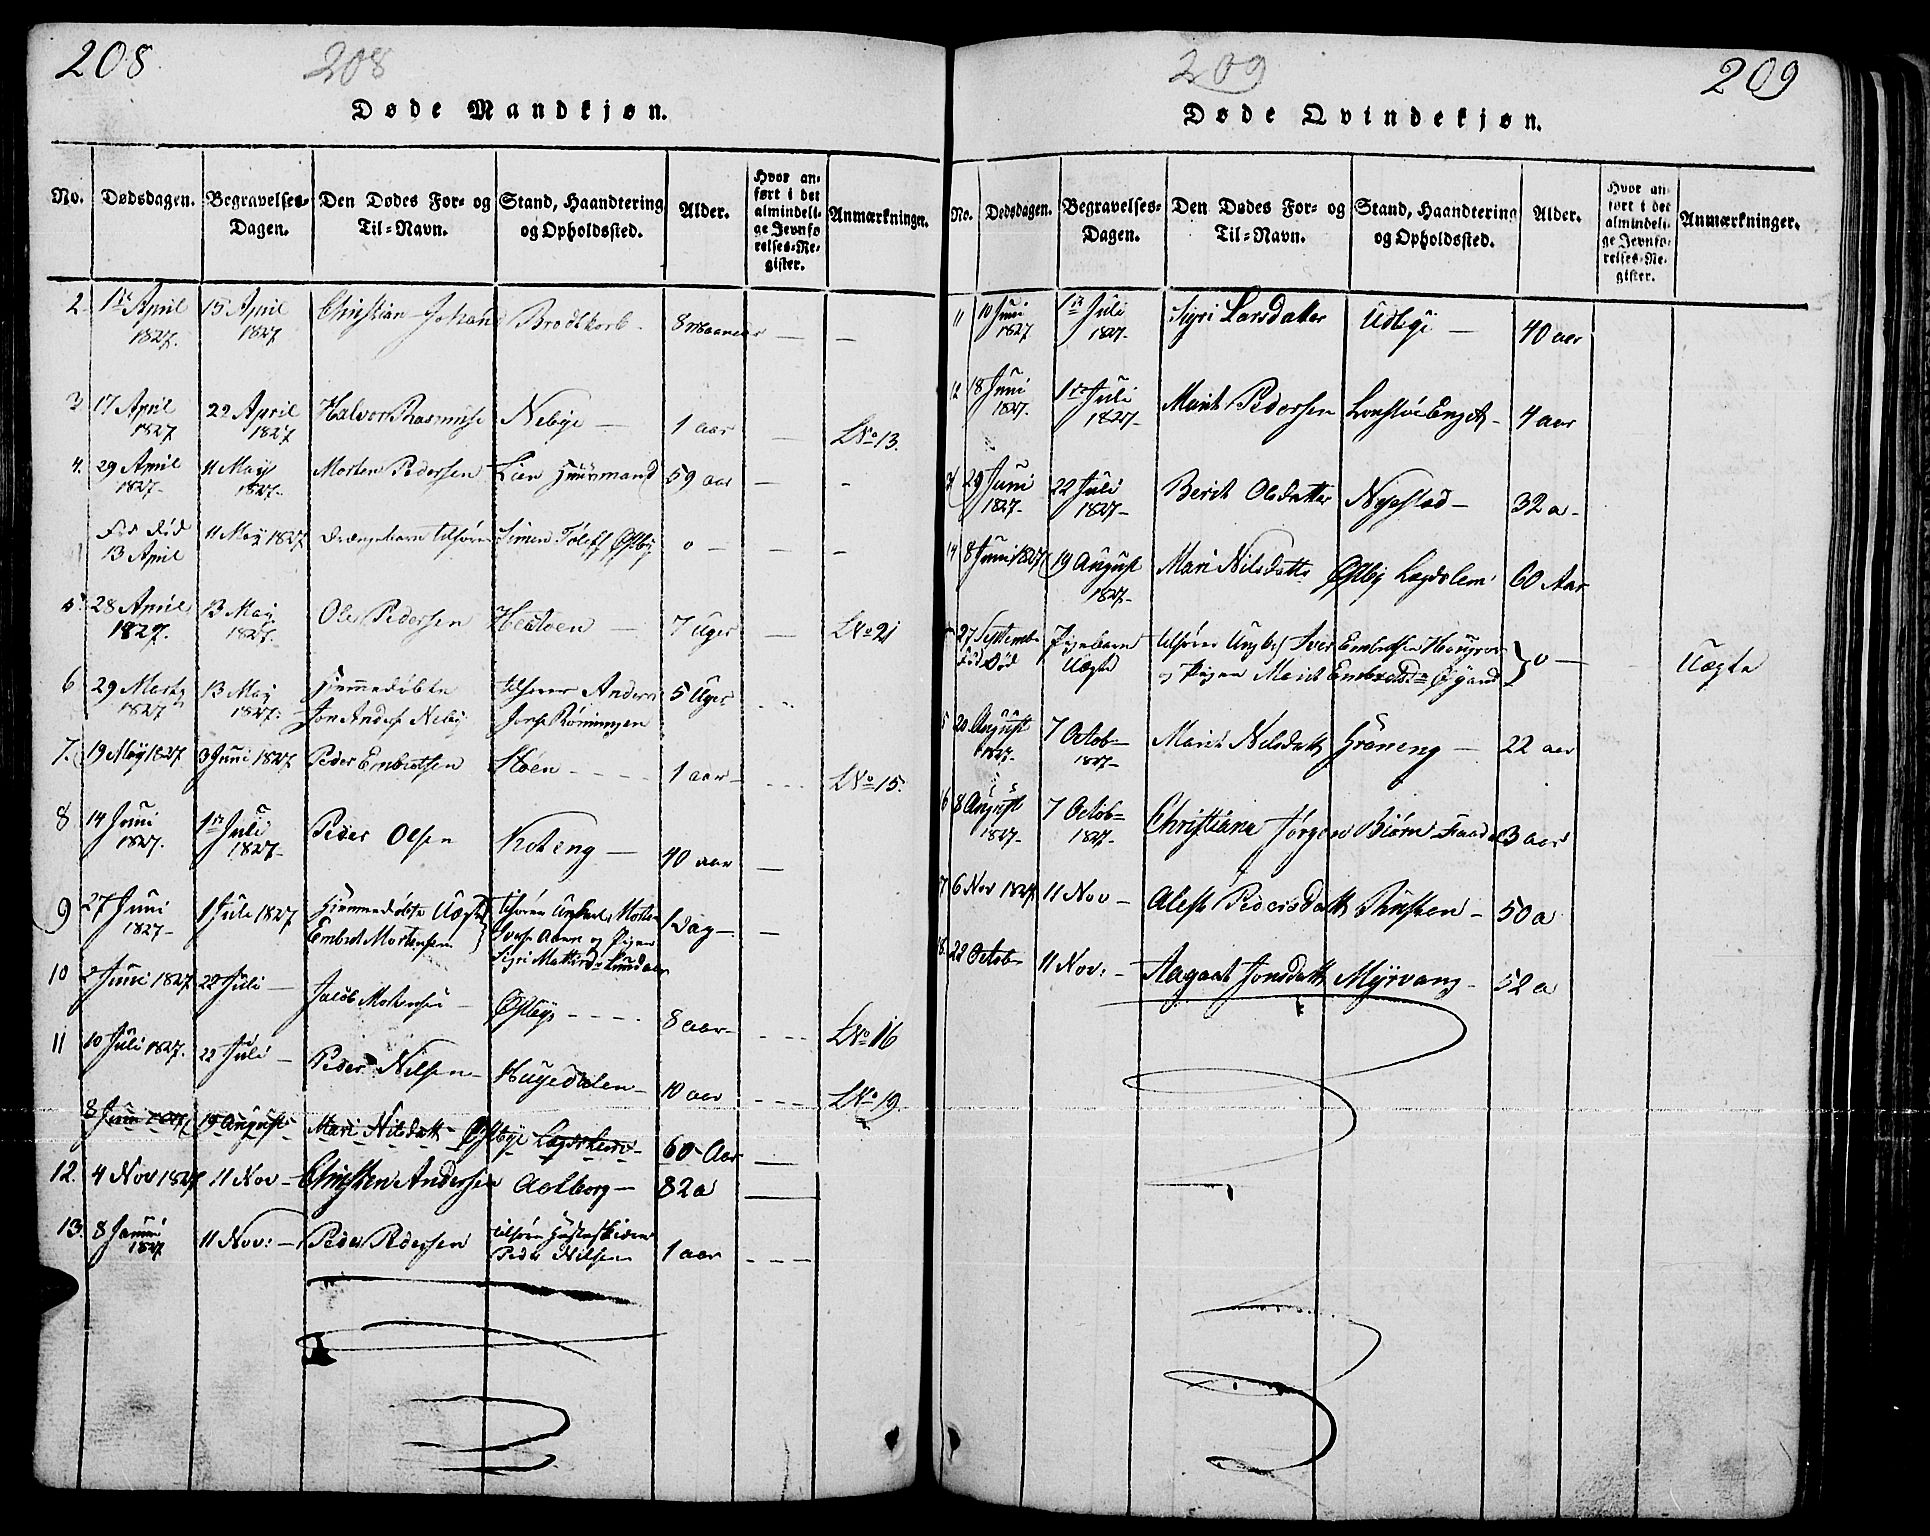 208 208
Døde Mandkjøn.
No. Dødsdagen. Begravelses-Dagen. Den Dødes For- og Til-Navn. Stand, Haandtering og Opholdssted. Alder. Hvor anført i det almindelige Jevnførelses-Register. Anmærkninger.
2. 1ste April 1827. 15 April 1827 Christian Johan Brodtkorb - 8 Maaneder — —
3 17 April 1827 22 April 1827 Halvor Rasmusse Nebye — 1 aar — LNo 13.
4. 29 April 1827- 11 May 1827- Morten Pedersen Lien Huusmand 59 aar — -
Død Fød 13 April 11 May 1827 Drængebarn tilhører Simen Tolefs Østby 0 — — —
5 28 April 1827. 13 May 1827. Ole Pedersen — 7 Uger — LNo 21
6 29 Marty 1827 13 May 1827. Hiemmedøbte Jon Anders Neby tilhører Anders Jons Rønningen 5 Uger
7. 19 May 1827 3 Juni 1827 Peder Embretsen Stoen - - - - 1 aar - - - - LNo 15.
8 14 Juni 1827. 1ste Juli 1827- Peder Olsen Noteng — 40 aar —
9 27 Juni 1827- 1 Juli 1827 Hiemmedøbte Uægte Embret Mortensen tilhører Unkarl Morten og Pigen Sigri 1 Dag —
10 2 Juni 1827 22 Juli — Jacob Mortensen Østbye - - - - 8 aar - - - - LNo 16
11 10 Juli 1827. 22 Juli — Peder Nilsen - Hugedalen - 10 aar - - - LNo 19.
8 Juni 1827 19 August Mari Nilsdatt Østbye Lægdslem - 60 Aar —
12. 4 Nov 1827 11 Nov - Christen Andersen Aalborg — 82 a —
13. 8 Januari 1827 11 Nov: — Peder Pedersen tilhører Peder Nilsen 1 aar - - - -
209 209
Døde Qvindekjøn.
No. Dødsdagen. Begravelses-Dagen. Den Dødes For- og Til-Navn. Stand, Haandtering og Opholdssted. Alder. Hvor anført i det almindelige Jevnførelses-Register. Anmærkninger.
11 10 Juni 1827 1ste Juli 1827- Sigri Larsdatter Udbye — 40 aar
12 18 Juni 1827. 1ste Juli 1827- Marit Pedersen 4 aar
29 Juni 1827- 22 Juli 1827- Berit Olsdatter Nyestad - 32 a -
14 8 Juni 1827 19 August 1827- Mari Nilsdatte Østby Lægdslem 60 Aar
27 Septemb- Fød Død Pigebarn Uægte tilhører Ungk Iver Embretsen og Pigen Marit Embretsd Øigard } 0 — Uægte
5 20 August 1827- 7 Octob- 1827- Marit Nilsdatt Grøneng — 22 aar
16 8 August 1827- 7 Octob= 1827- Christiane Jørgen 3 aar
7 6 Nov 1827 11 Nov — Pedersdatt - 50 a
18 22 Octob- 11 Nov: - Aagaat Jonsdatt Myrvang - 52 a